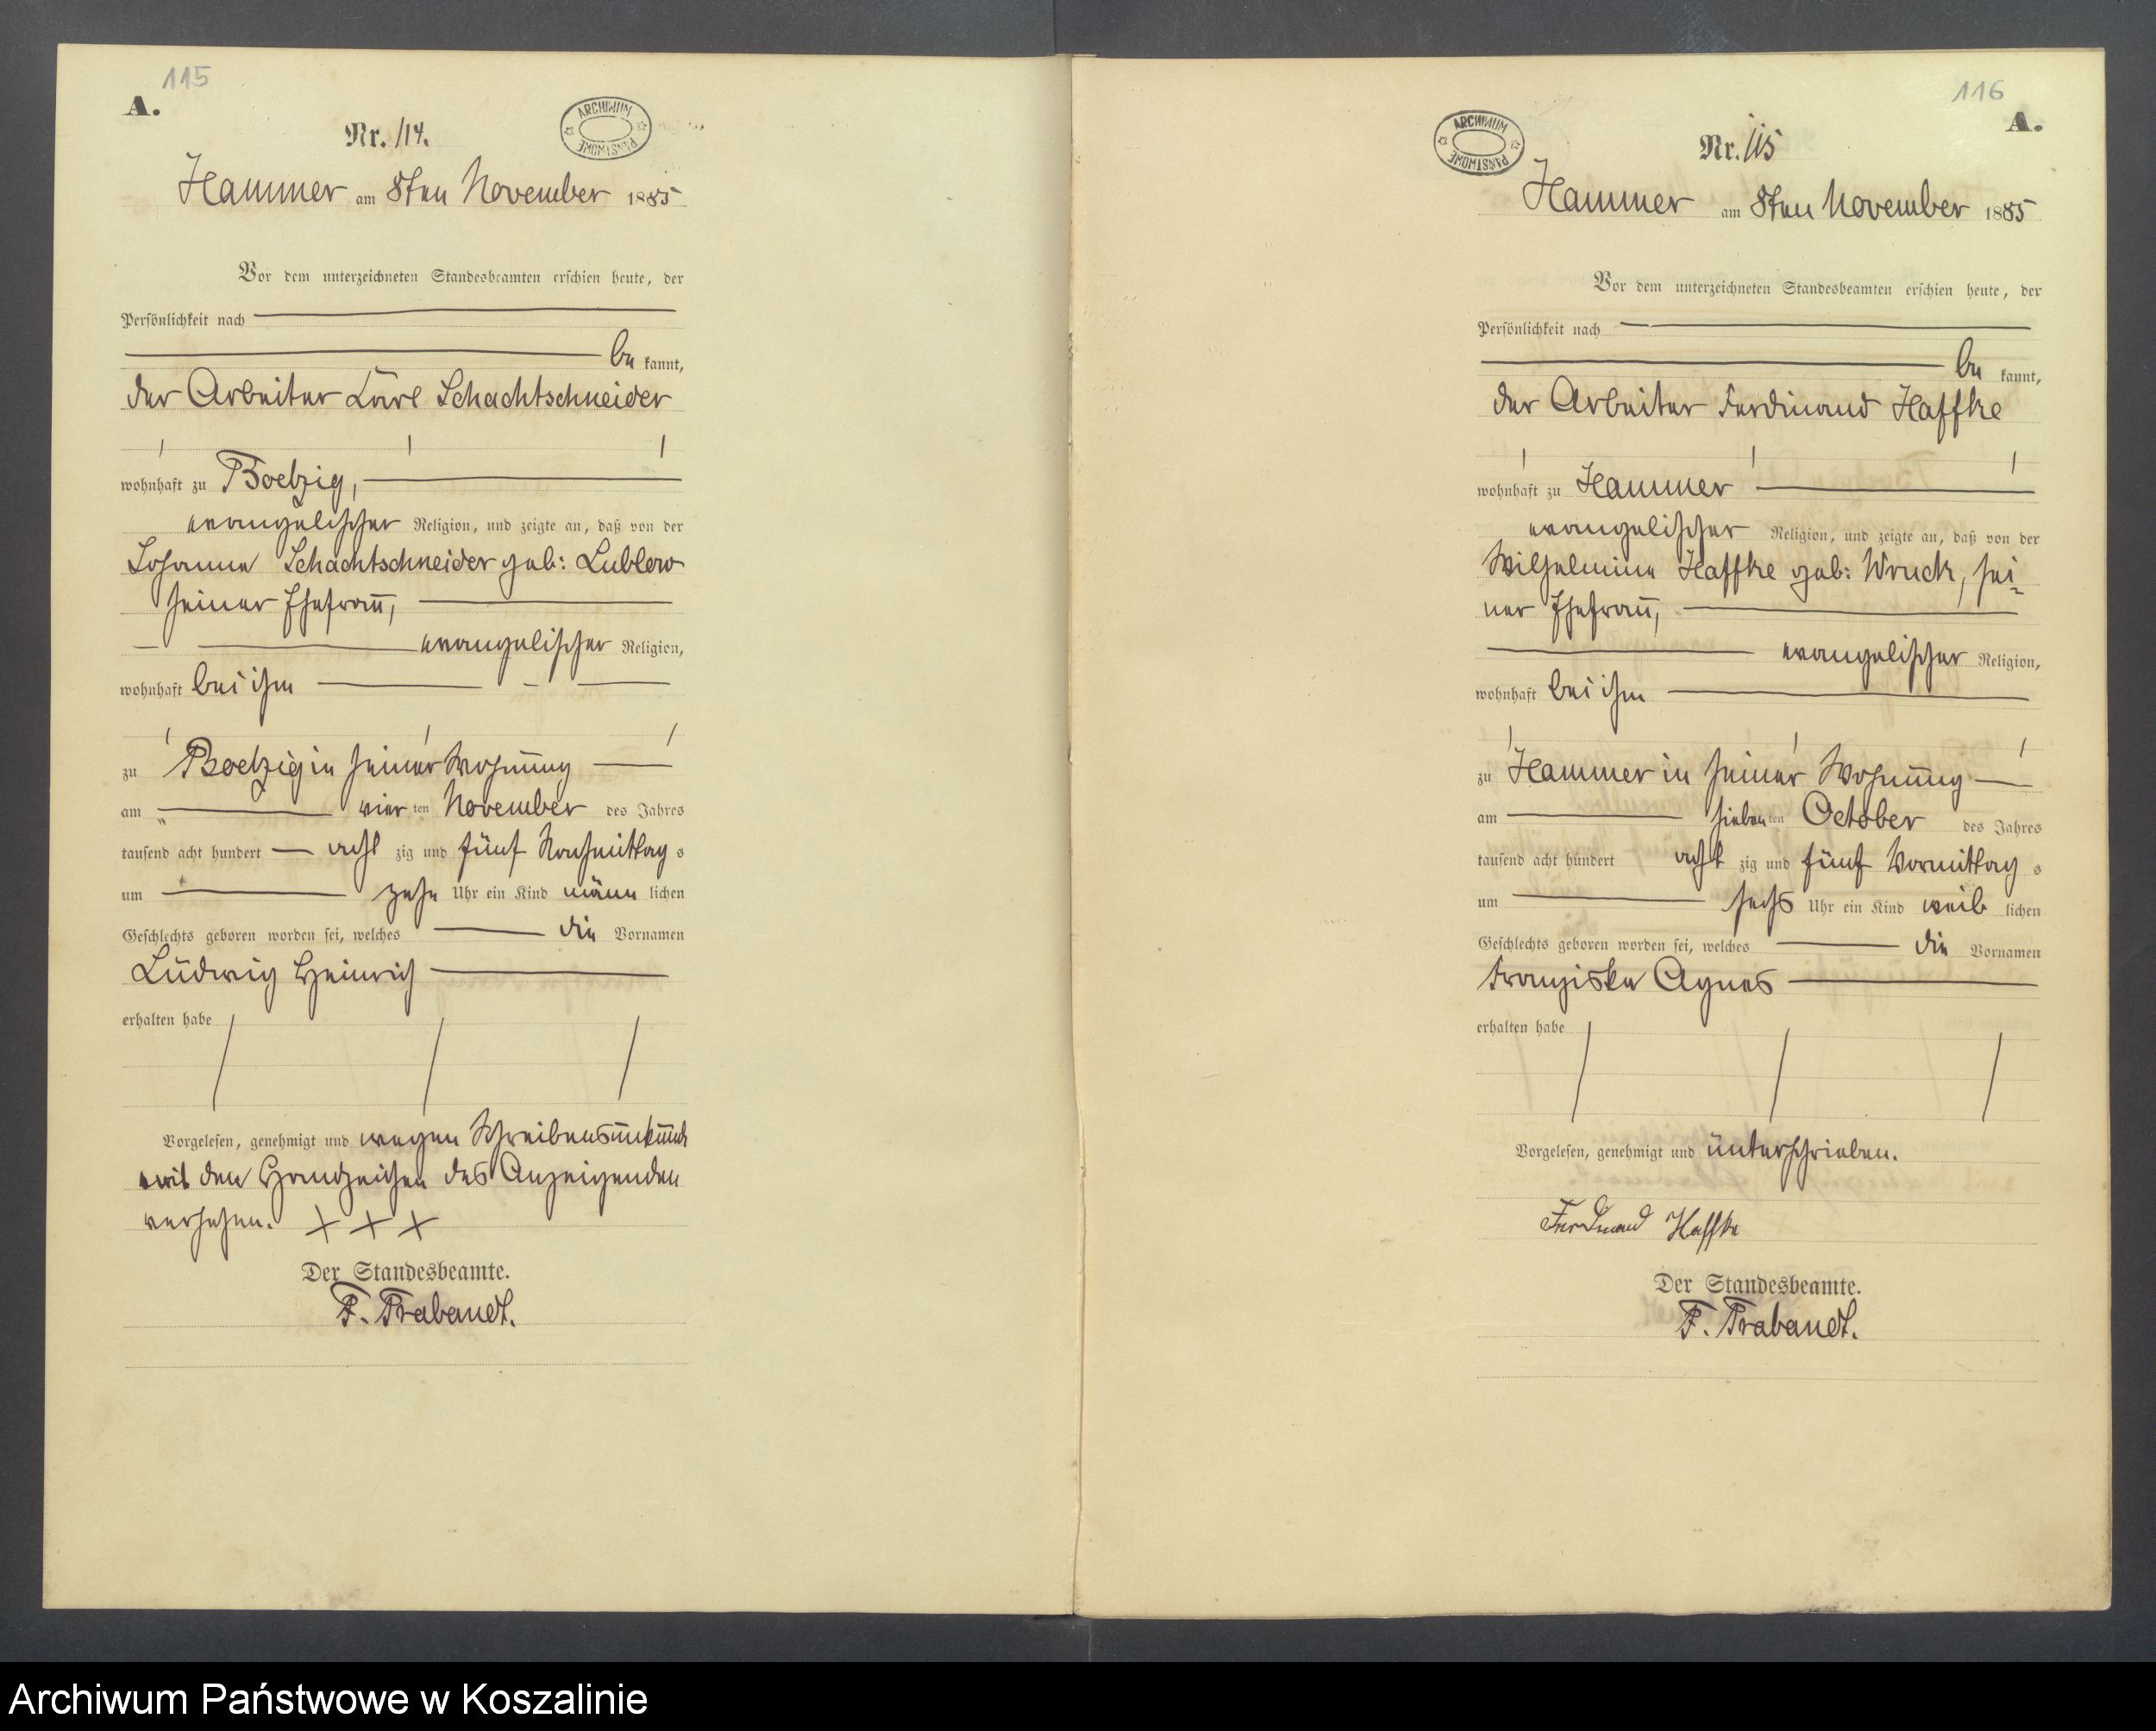 115
A.
Nr. 114.
ARCHIWUM PAŃSTWOWE
Hammer am 8ten November 1885
Vor dem unterzeichneten Standesbeamten erschien heute, der
Persönlichkeit nach
be kannt,
der Arbeiter Carl Schachtschneider
wohnhaft zu Boelzig,
evangelischer Religion, und zeigte an, daß von der
Johanne Schachtschneider geb: Lublow
seiner Ehefrau,
evangelischer Religion,
wohnhaft bei ihm
zu Boelzig in seiner Wohnung
am vier ten November des Jahres
tausend acht hundert acht zig und fünf Nachmittag s
um zehn Uhr ein Kind männ lichen
Geschlechts geboren worden sei, welches die Vornamen
Ludwig Heinrich
erhalten habe
Vorgelesen, genehmigt und wegen Schreibensunkunde
mit den Handzeichen des Anzeigenden
versehen. + + +
Der Standesbeamte.
F. Trabandt.
116
A.
Nr. 115
ARCHIWUM PAŃSTWOWE
Hammer am 8ten November 1885
Vor dem unterzeichneten Standesbeamten erschien heute, der
Persönlichkeit nach
be kannt,
der Arbeiter Ferdinand Haffke
wohnhaft zu Hammer
evangelischer Religion, und zeigte an, daß von der
Wilhelmine Haffke geb: Wruck, sei-
ner Ehefrau,
evangelischer Religion,
wohnhaft bei ihm
zu Hammer in seiner Wohnung
am sieben ten October des Jahres
tausend acht hundert acht zig und fünf Vormittag s
um sechs Uhr ein Kind weib lichen
Geschlechts geboren worden sei, welches die Vornamen
Franziska Agnes
erhalten habe
Vorgelesen, genehmigt und unterschrieben.
Ferdinand Haffke
Der Standesbeamte.
F. Trabandt.
Archiwum Państwowe w Koszalinie